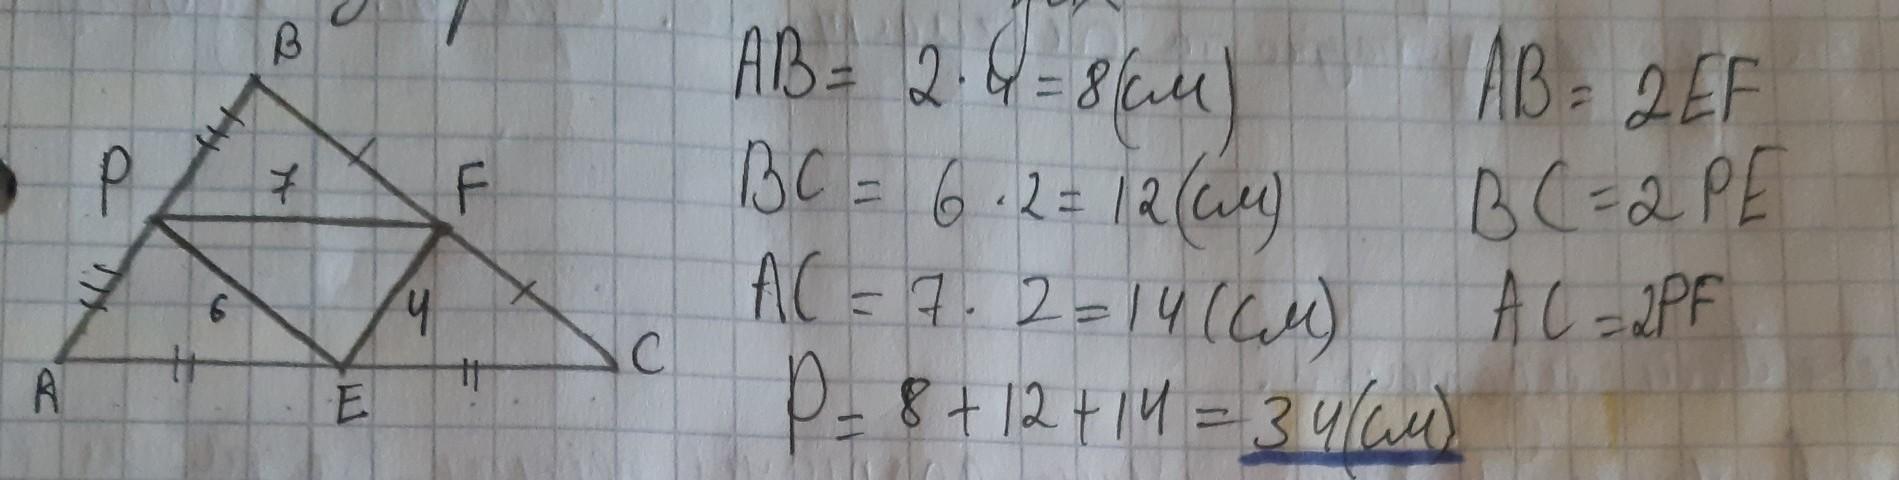 B
P
7
F
6
4
A
E
C
AB = 2 · 4 = 8 (см)
AB = 2EF
BC = 6 · 2 = 12 (см)
BC = 2 PE
AC = 7 · 2 = 14 (см)
AC = 2PF
P = 8 + 12 + 14 = 34 (см)